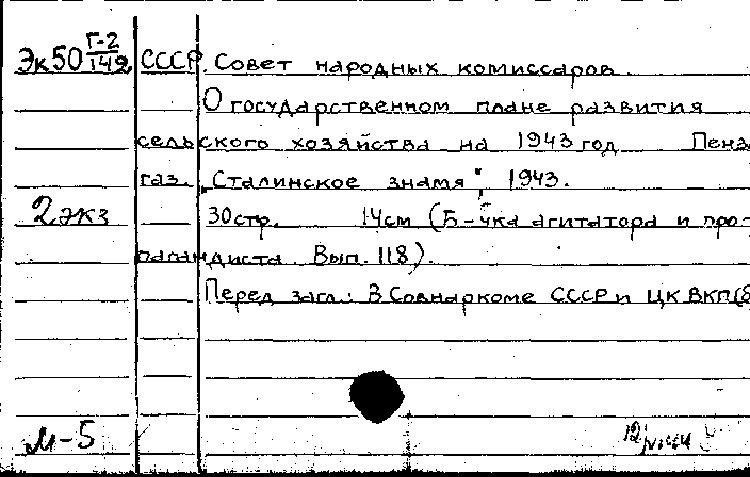 Эк50 Г-2/149 СССР. Совет народных комиссаров.
О государственном плане развития
сельского хозяйства на 1943 год Пенза
газ. „Сталинское знамя", 1943.
2 экз 30 стр. 14 см (Б-чка агитатора и проп-
пагандиста. Вып. 118).
Перед загл.: В Совнаркоме СССР и ЦК ВКП(б
М-5